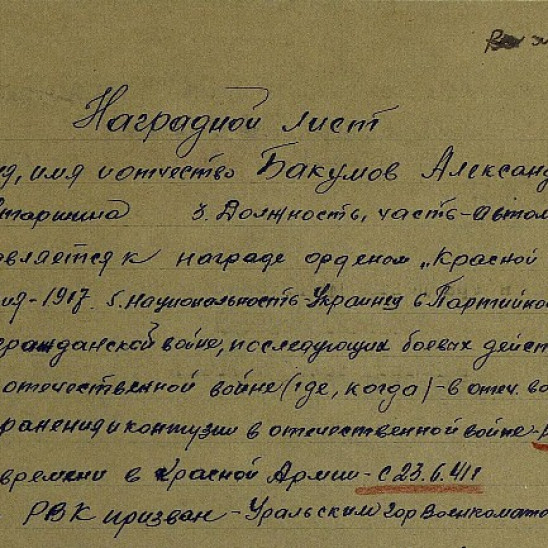 Наградной лист
имя и отчество Бакумов Александ
Старшина 3. Должность, часть - Автом
вляется к награде орденом „Красной
ия - 1917. 5. Национальность - Украинец 6 Партийнос
гражданской войне, последующих боевых дейст
отечественной войне (где, когда) - в отеч. во
ранения и контузии в отечественной войне -
времени в Красной Армии - с 23.6.41г
РВК призван - Уральским Гор Военкомато